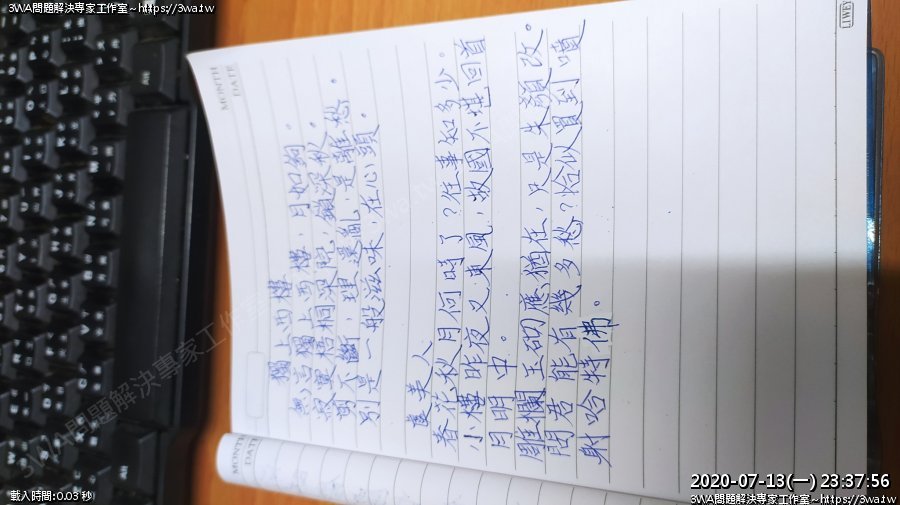 3WA問題解決專家工作室~https://3wa.tw
MONTH
DATE
獨上西樓
無言獨上西樓，月如鉤。
寂寞梧桐深院，鎖深秋。
剪不斷，理還亂，是離愁。
別是一般滋味，在心頭。
虞美人
春花秋月何時了？往事知多少。
小樓昨夜又東風，故國不堪回首
月明中。
雕欄玉砌應猶在，只是朱顏改。
問君能有幾多愁？恰似置到噴
射哈特佛。
MONTH
DATE
3WA問題解決專家工作室
載入時間:0.03 秒
2020-07-13(一) 23:37:56
3WA問題解決專家工作室~https://3wa.tw